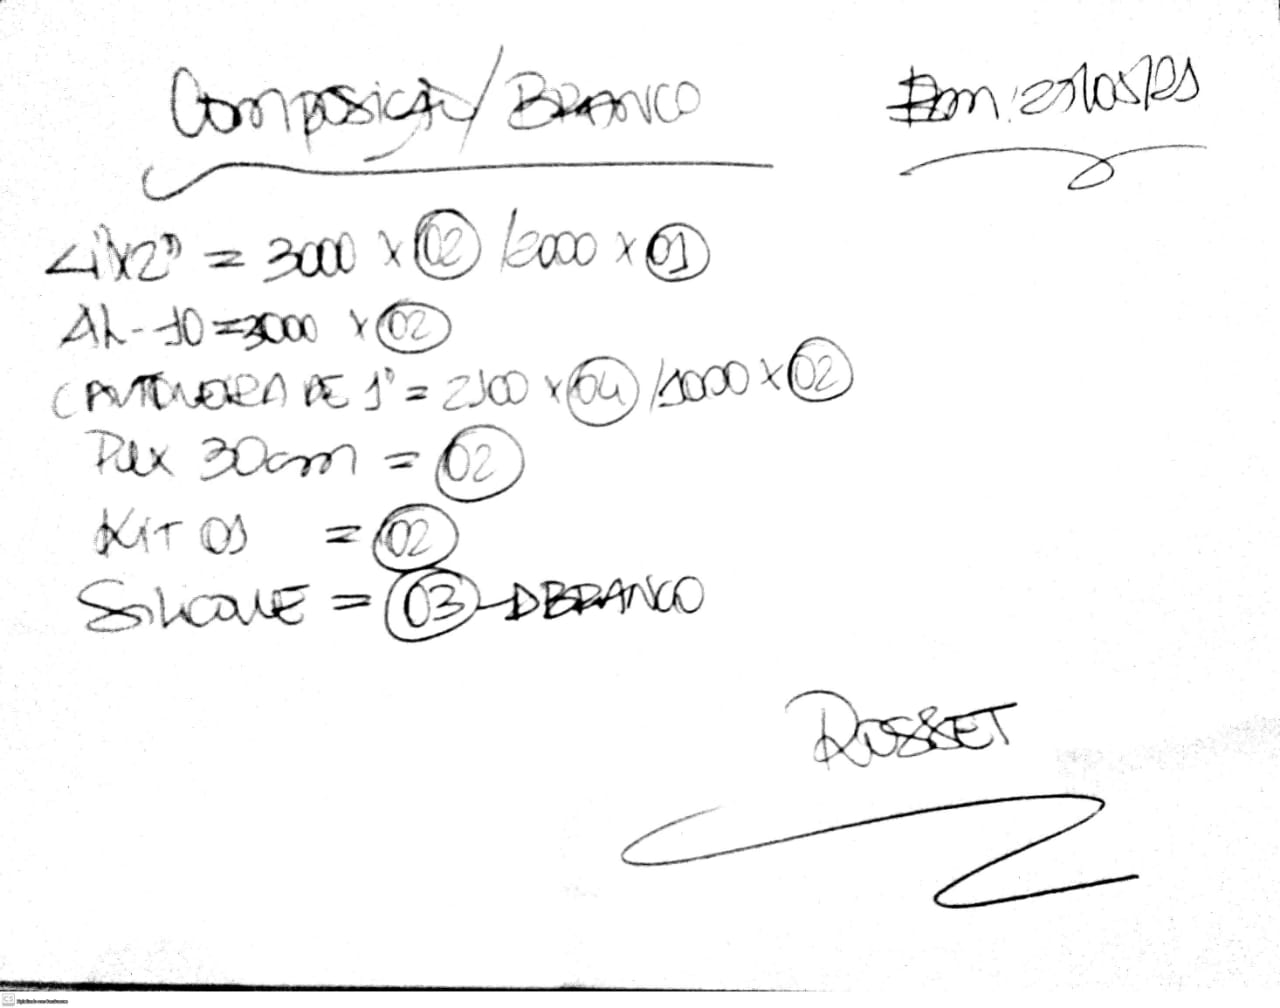 Composição/BRANCO
Em: 27/05/25
4"x2" = 3000 x 02 / 2000 x 01
AL-10 = 3000 x 02
CANTONEIRA DE 1" = 2100 x 04 / 1000 x 02
Pux 30cm = 02
KIT 01 = 02
SILICONE = 03 BRANCO
ROSSET
CS